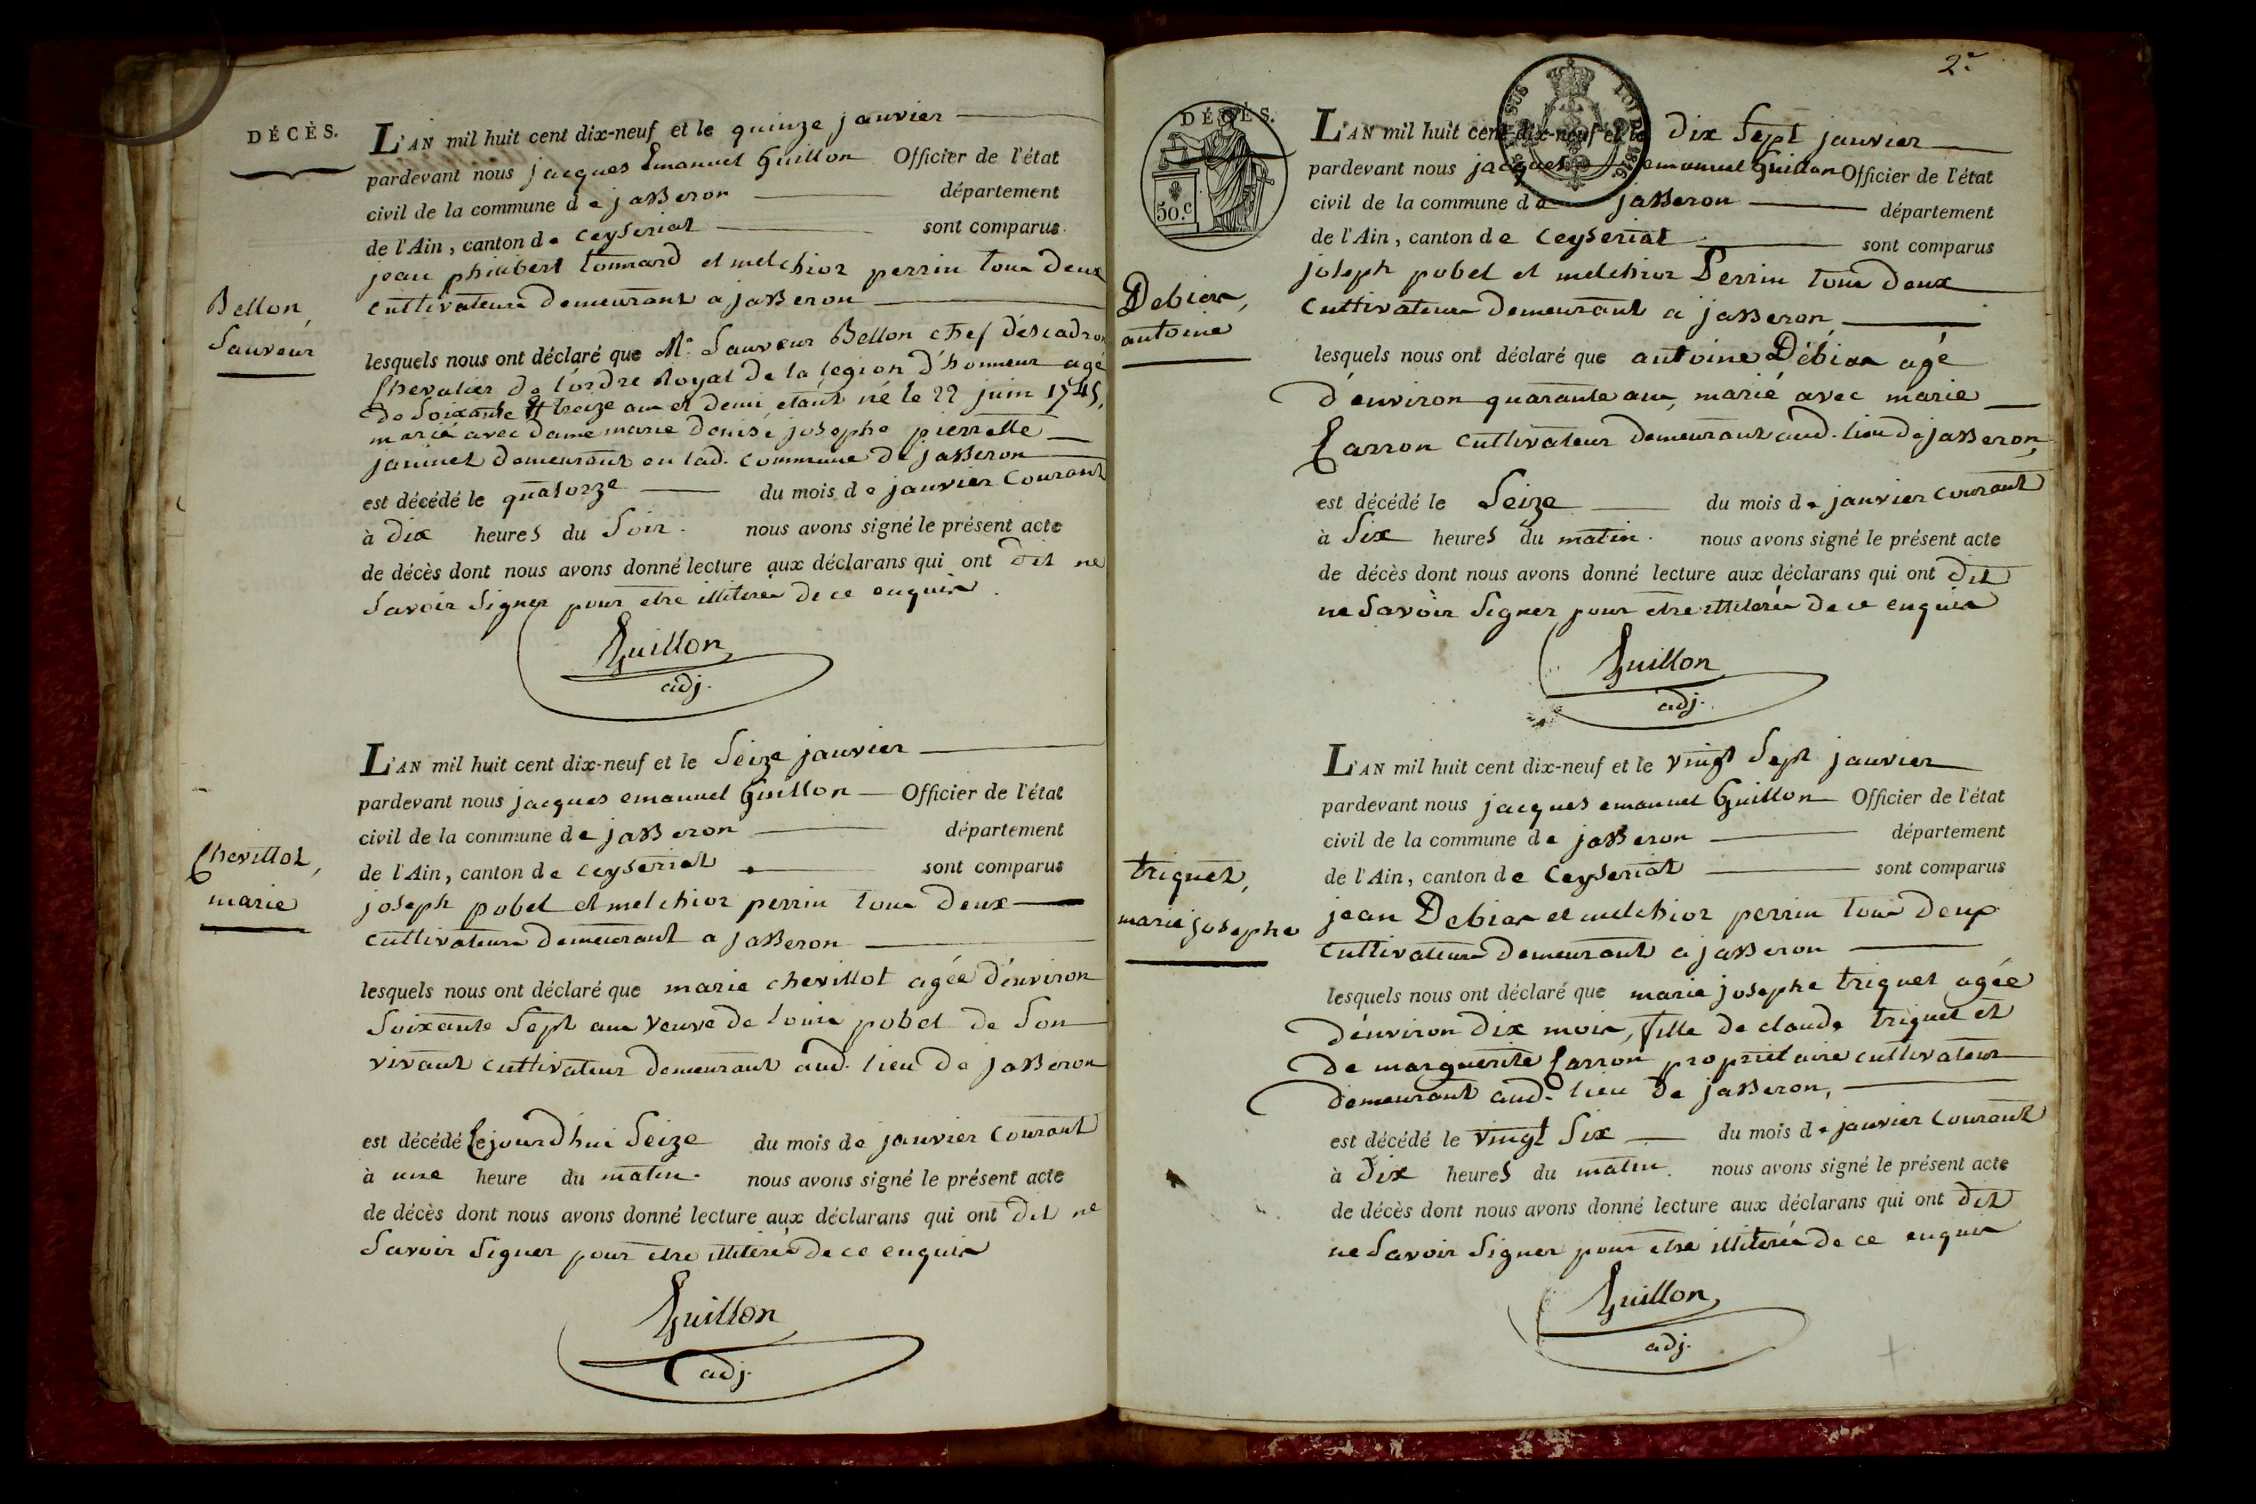 DÉCÈS.
L'AN mil huit cent dix-neuf et le quinze janvier
pardevant nous jacques Emanuel Guillon Officier de l'état
civil de la commune de jasseron département
de l'Ain, canton de Ceyseriat sont comparus
jean philibert tonnard et melchior perrin tous deux
cultivateurs demeurant a jasseron
Bellon,
Sauveur
lesquels nous ont déclaré que Mr. Sauveur Bellon chef d'éscadron
Chevalier de l'ordre Royal de la légion d'honneur agé
de soixante et treize ans et demi, etant né le 22 juin 1745,
marié avec dame marie denise josephe pierrette
janinet demeurant en lad. commune de jasseron
est décédé le quatorze du mois de janvier Courant
à dix heures du Soir. nous avons signé le présent acte
de décès dont nous avons donné lecture aux déclarans qui ont dit ne
Savoir Signer pour etre illiterés de ce enquis.
Guillon
adj.
L'AN mil huit cent dix-neuf et le Seize janvier
pardevant nous jacques emanuel Guillon Officier de l'état
civil de la commune de jasseron département
de l'Ain, canton de Ceyseriat sont comparus
Chevillot,
marie
joseph pobel et melchior perrin tous deux
cultivateurs demeurant a jasseron
lesquels nous ont déclaré que marie chevillot agée d'environ
Soixante Sept ans veuve de louis pobel de Son
vivant cultivateur demeurant aud. lieu de jasseron
est décédé Cejourd'hui Seize du mois de janvier Courant
à une heure du matin. nous avons signé le présent acte
de décès dont nous avons donné lecture aux déclarans qui ont dit ne
Savoir Signer pour etre illiterés de ce enquis
Guillon
adj.
2e.
DÉCÈS.
50.c
LOI DE 1816
L'AN mil huit cent dix-neuf et le dix Sept janvier
pardevant nous jacques emanuel Guillon Officier de l'état
civil de la commune de jasseron département
de l'Ain, canton de Ceyseriat sont comparus
joseph pobel et melchior Perrin tous deux
cultivateurs demeurant a jasseron,
Debias,
antoine
lesquels nous ont déclaré que antoine Débias agé
d'environ quarante ans, marié avec marie
Carron cultivateur demeurant aud. lieu de jasseron,
est décédé le Seize du mois de janvier courant
à Six heures du matin. nous avons signé le présent acte
de décès dont nous avons donné lecture aux déclarans qui ont dit
ne Savoir Signer pour etre illiterés de ce enquis
Guillon
adj.
L'AN mil huit cent dix-neuf et le vingt Sept janvier
pardevant nous jacques emanuel Guillon Officier de l'état
civil de la commune de jasseron département
de l'Ain, canton de Ceyseriat sont comparus
triquet,
marie josephe
jean Debias et melchior perrin tous deux
cultivateurs demeurant a jasseron
lesquels nous ont déclaré que marie josephe triquet agée
d'environ dix mois, fille de claude triquet et
de marguerite Carron propriétaire cultivateur
demeurant aud. lieu de jasseron,
est décédé le vingt Six du mois de janvier Courant
à dix heures du matin. nous avons signé le présent acte
de décès dont nous avons donné lecture aux déclarans qui ont dit
ne Savoir Signer pour etre illiterés de ce enquis
Guillon
adj.